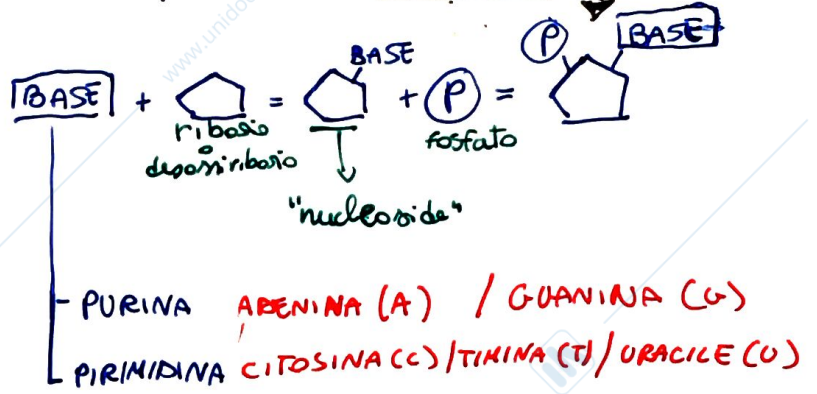 BASE
P BASE
BASE + = + P =
ribosio fosfato
o
desossiribosio
"nucleoside"
PURINA ADENINA (A) / GUANINA (G)
PIRIMIDINA CITOSINA (C) / TIMINA (T) / URACILE (U)